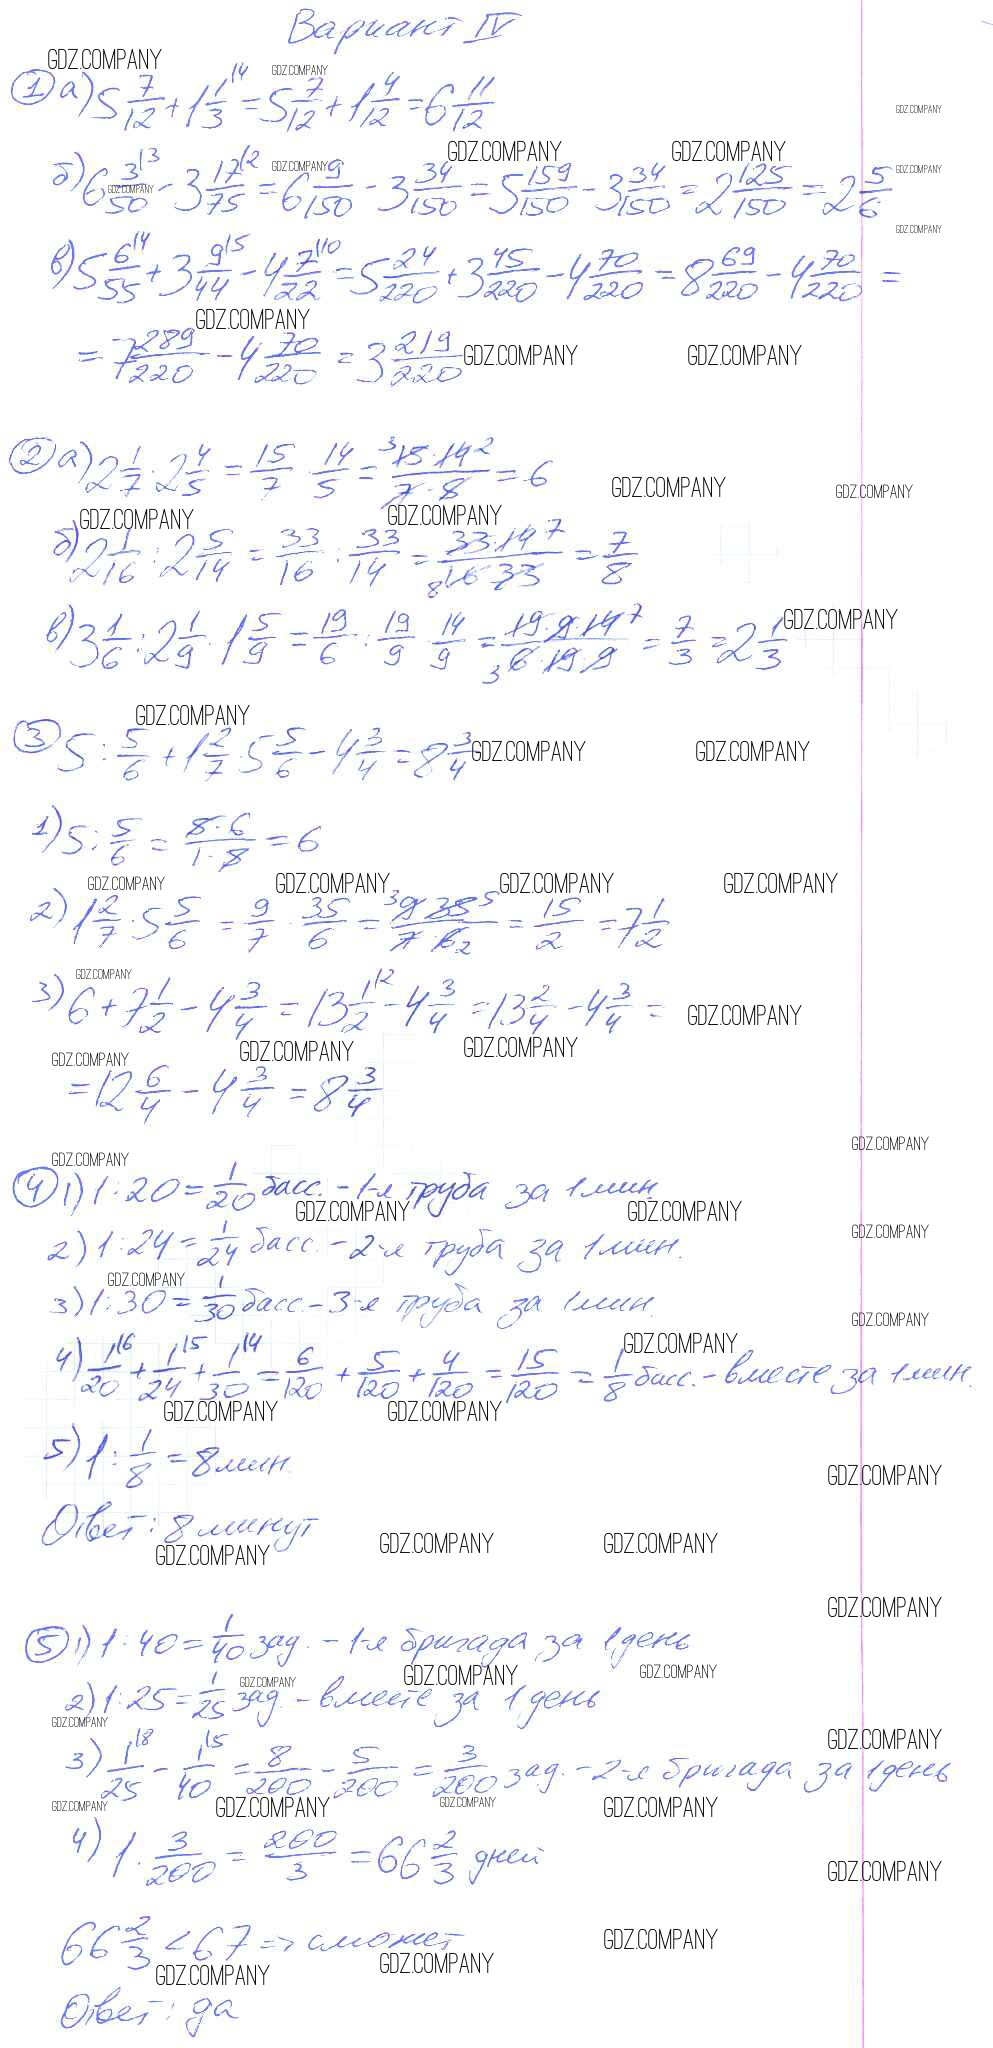 Вариант IV
① а) 5 7/12 + 1 1/3 |4 = 5 7/12 + 1 4/12 = 6 11/12
б) 6 3/50 |3 - 3 17/75 |2 = 6 9/150 - 3 34/150 = 5 159/150 - 3 34/150 = 2 125/150 = 2 5/6
в) 5 6/55 |4 + 3 9/44 |5 - 4 7/22 |10 = 5 24/220 + 3 45/220 - 4 70/220 = 8 69/220 - 4 70/220 =
= 7 289/220 - 4 70/220 = 3 219/220
② а) 2 1/7 · 2 4/5 = 15/7 · 14/5 = 3 15·14 2/7·8 = 6
б) 2 1/16 : 2 5/14 = 33/16 : 33/14 = 33·14 7/8 16·33 = 7/8
в) 3 1/6 : 2 1/9 · 1 5/9 = 19/6 : 19/9 · 14/9 = 19·9·14 7/3 6·19·9 = 7/3 = 2 1/3
③ 5 : 5/6 + 1 2/7 · 5 5/6 - 4 3/4 = 8 3/4
1) 5 : 5/6 = 8·6/1·8 = 6
2) 1 2/7 · 5 5/6 = 9/7 · 35/6 = 3 9·35 5/7·6 2 = 15/2 = 7 1/2
3) 6 + 7 1/2 - 4 3/4 = 13 1/2 |2 - 4 3/4 = 13 2/4 - 4 3/4 =
= 12 6/4 - 4 3/4 = 8 3/4
④ 1) 1 : 20 = 1/20 басс. - 1-я труба за 1 мин
2) 1 : 24 = 1/24 басс. - 2-я труба за 1 мин.
3) 1 : 30 = 1/30 басс - 3-я труба за 1 мин
4) 1/20 |6 + 1/24 |5 + 1/30 |4 = 6/120 + 5/120 + 4/120 = 15/120 = 1/8 басс. - вместе за 1 мин.
5) 1 : 1/8 = 8 мин
Ответ: 8 минут
⑤ 1) 1 : 40 = 1/40 зад. - 1-я бригада за 1 день
2) 1 : 25 = 1/25 зад. - вместе за 1 день
3) 1/25 |8 - 1/40 |5 = 8/200 - 5/200 = 3/200 зад. - 2-я бригада за 1 день
4) 1 · 3/200 = 200/3 = 66 2/3 дней
66 2/3 < 67 => сможет
Ответ: да
GDZ.COMPANY